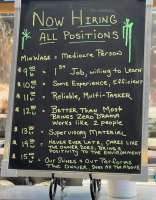 Now Hiring
All Positions
Min Wage = Mediocre Person
$ 9 1st Job, willing to Learn
$ 10 Some Experience, Efficient
$ 11 Reliable, Multi-Tasker
$ 12 Better Than Most
Brings Zero Drama
Works like 2 people
$ 13 Supervisory Material
$ 14 Never Ever Late, Cares Like
the owner does, Brings
Positivity to the Environment
$ 15 Out Shines & Out Performs
The Owner. Does All the Above